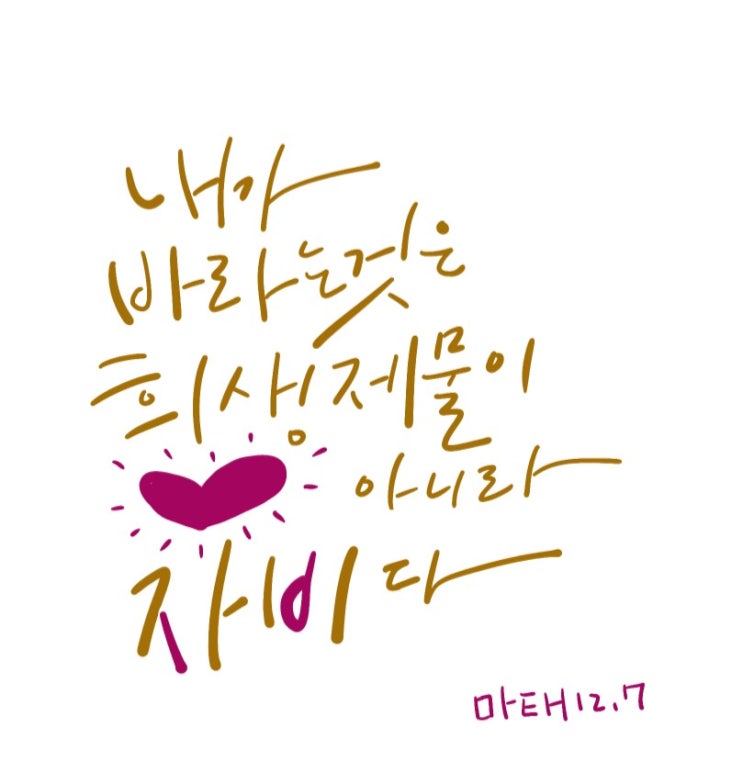 내가
바라는것은
희생제물이
아니라
자비다
마태12.7